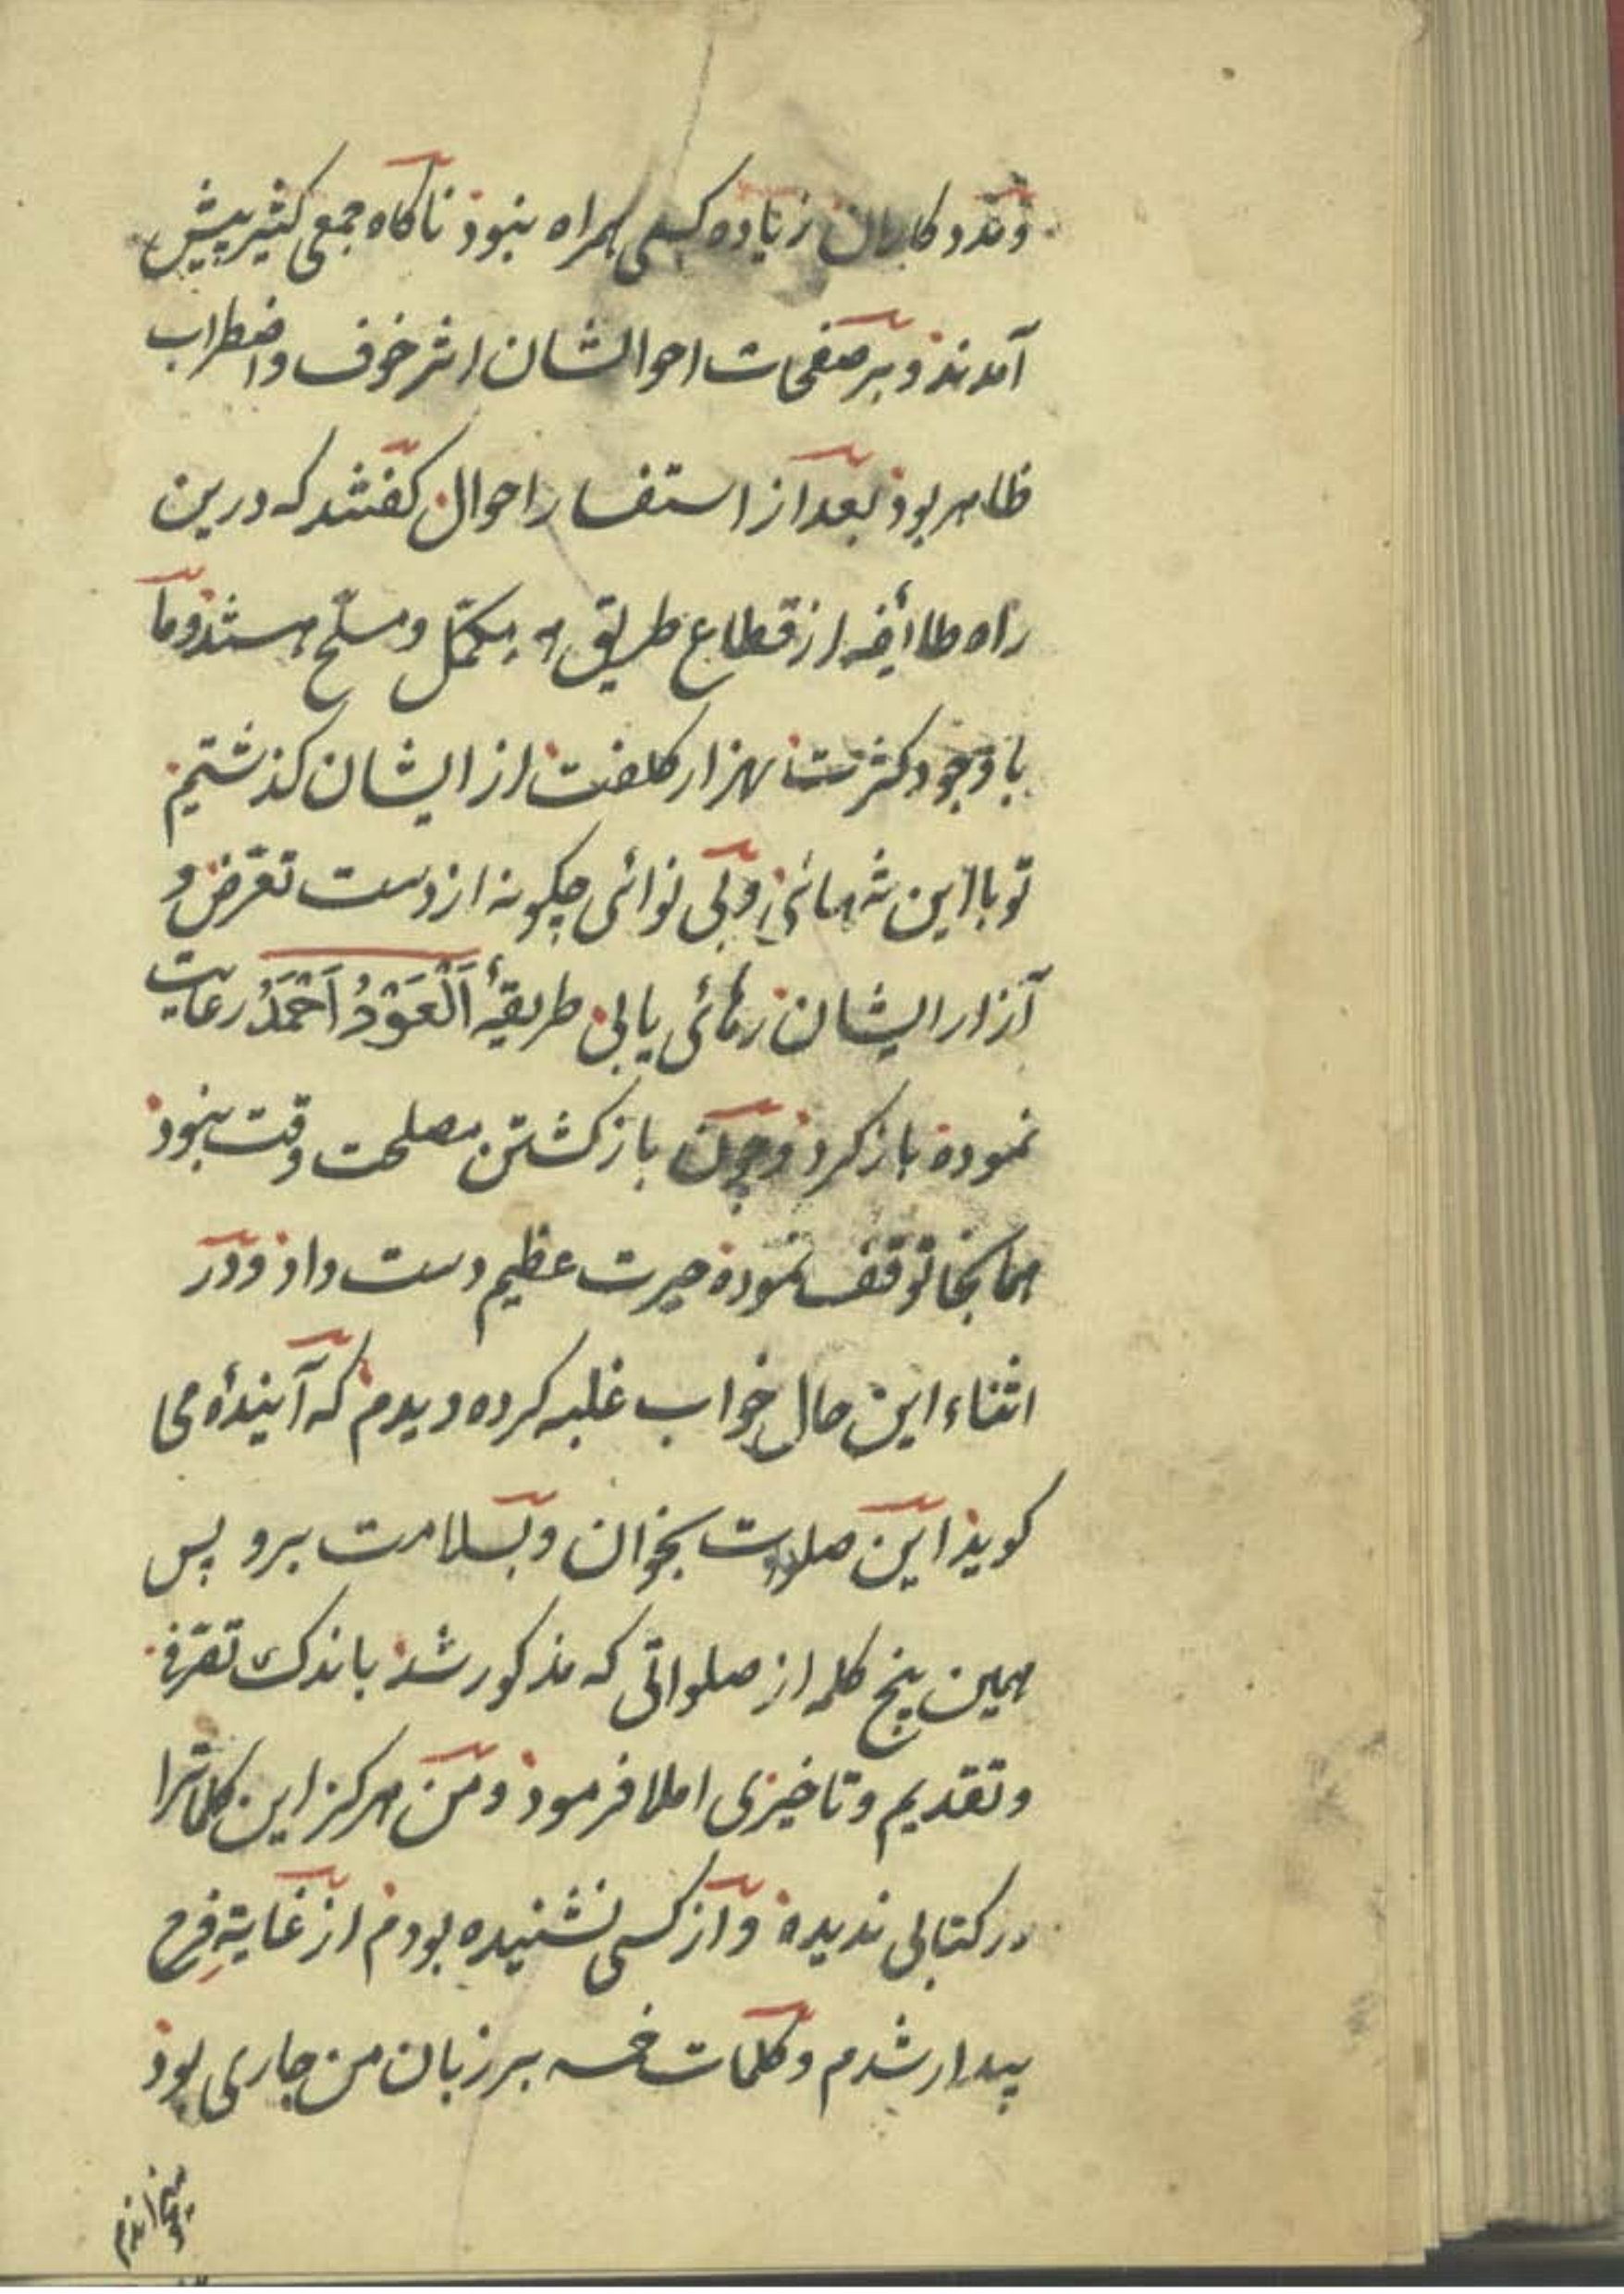 زیاده کسی همراه نبود ناکاه جمعی کثیر پیش
آمدند و بر صفحات احوالشان اثر خوف و اضطراب
ظاهر بود بعد از استفسار احوال کفتند که درین
راه طائفه از قطاع طریق مکمّل و مسلّح هستند و ما
با وجود کثرت بهزار کلفت از ایشان کذشتیم
تو با این تنهائی و بی نوائی چکونه از دست تعرّض و
آزار ایشان رهائی یابی طریقهٔ اَلْعَوْدُ اَحْمَدُ رعایت
نموده باز کرد و چون باز کشتن مصلحت وقت نبود
همانجا توقف نموده حیرت عظیم دست داد و در
اثناء این حال خواب غلبه کرده دیدم که آیندهٔ می
کوید این صلوات بخوان و بسلامت برو پس
همین پنج کلمه از صلواتی که مذکور شد باندک تصرّفی
و تقدیم و تاخیری املا فرمود و من هرکز این کلماترا
در کتابی ندیده و از کسی نشنیده بودم از غایةِ فرح
بیدار شدم و کلمات خمسه بر زبان من جاری بود
میخواندم